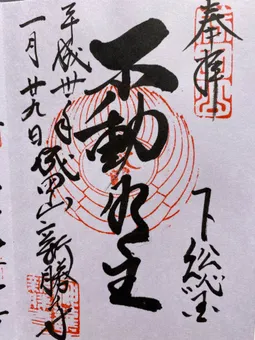 奉拝
下総国
不動明王
平成卅年
一月廿九日成田山新勝寺